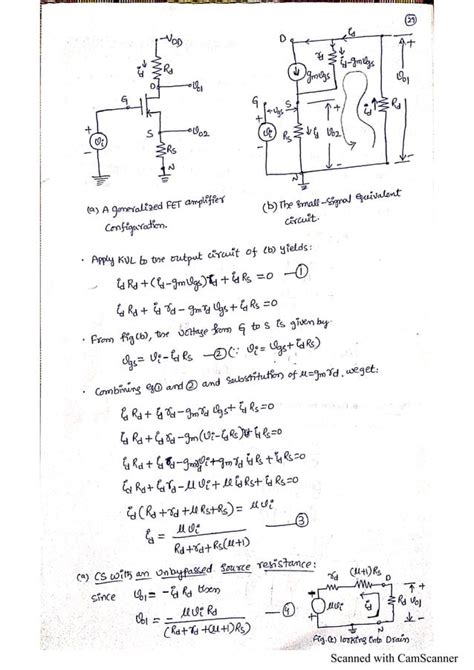 29
VDD
id
Rd
D
vo1
G
S
vo2
Rs
vi
N
D
id
rd
id-gmvgs
gmvgs
vo1
G
vgs
S
vi
Rs
id
vo2
id
Rd
N
(a) A generalized FET amplifier
Configuration.
(b) The small-signal equivalent
circuit.
· Apply KVL to the output circuit of (b) yields:
id Rd + (id-gmvgs)rd + id Rs = 0 —①
id Rd + id rd - gm rd vgs + id Rs = 0
· From fig(b), the voltage from G to S is given by
vgs = vi - id Rs —② (∵ vi = vgs + id Rs)
· Combining eq ① and ② and substitution of μ=gmrd, we get:
id Rd + id rd - gm rd vgs + id Rs = 0
id Rd + id rd - gm(vi - id Rs) rd + id Rs = 0
id Rd + id rd - gm rd vi + gm rd id Rs + id Rs = 0
id Rd + id rd - μ vi + μ id Rs + id Rs = 0
id (Rd + rd + μRs + Rs) = μvi
id = μvi / Rd+rd+Rs(μ+1) —③
(a) CS with an unbypassed Source resistance:
since vo1 = -id Rd then
vo1 = -μvi Rd / (Rd+rd+(μ+1)Rs) —④
rd
(μ+1)Rs
D
μvi
id
Rd
vo1
N
Fig.(c) looking into Drain
Scanned with CamScanner